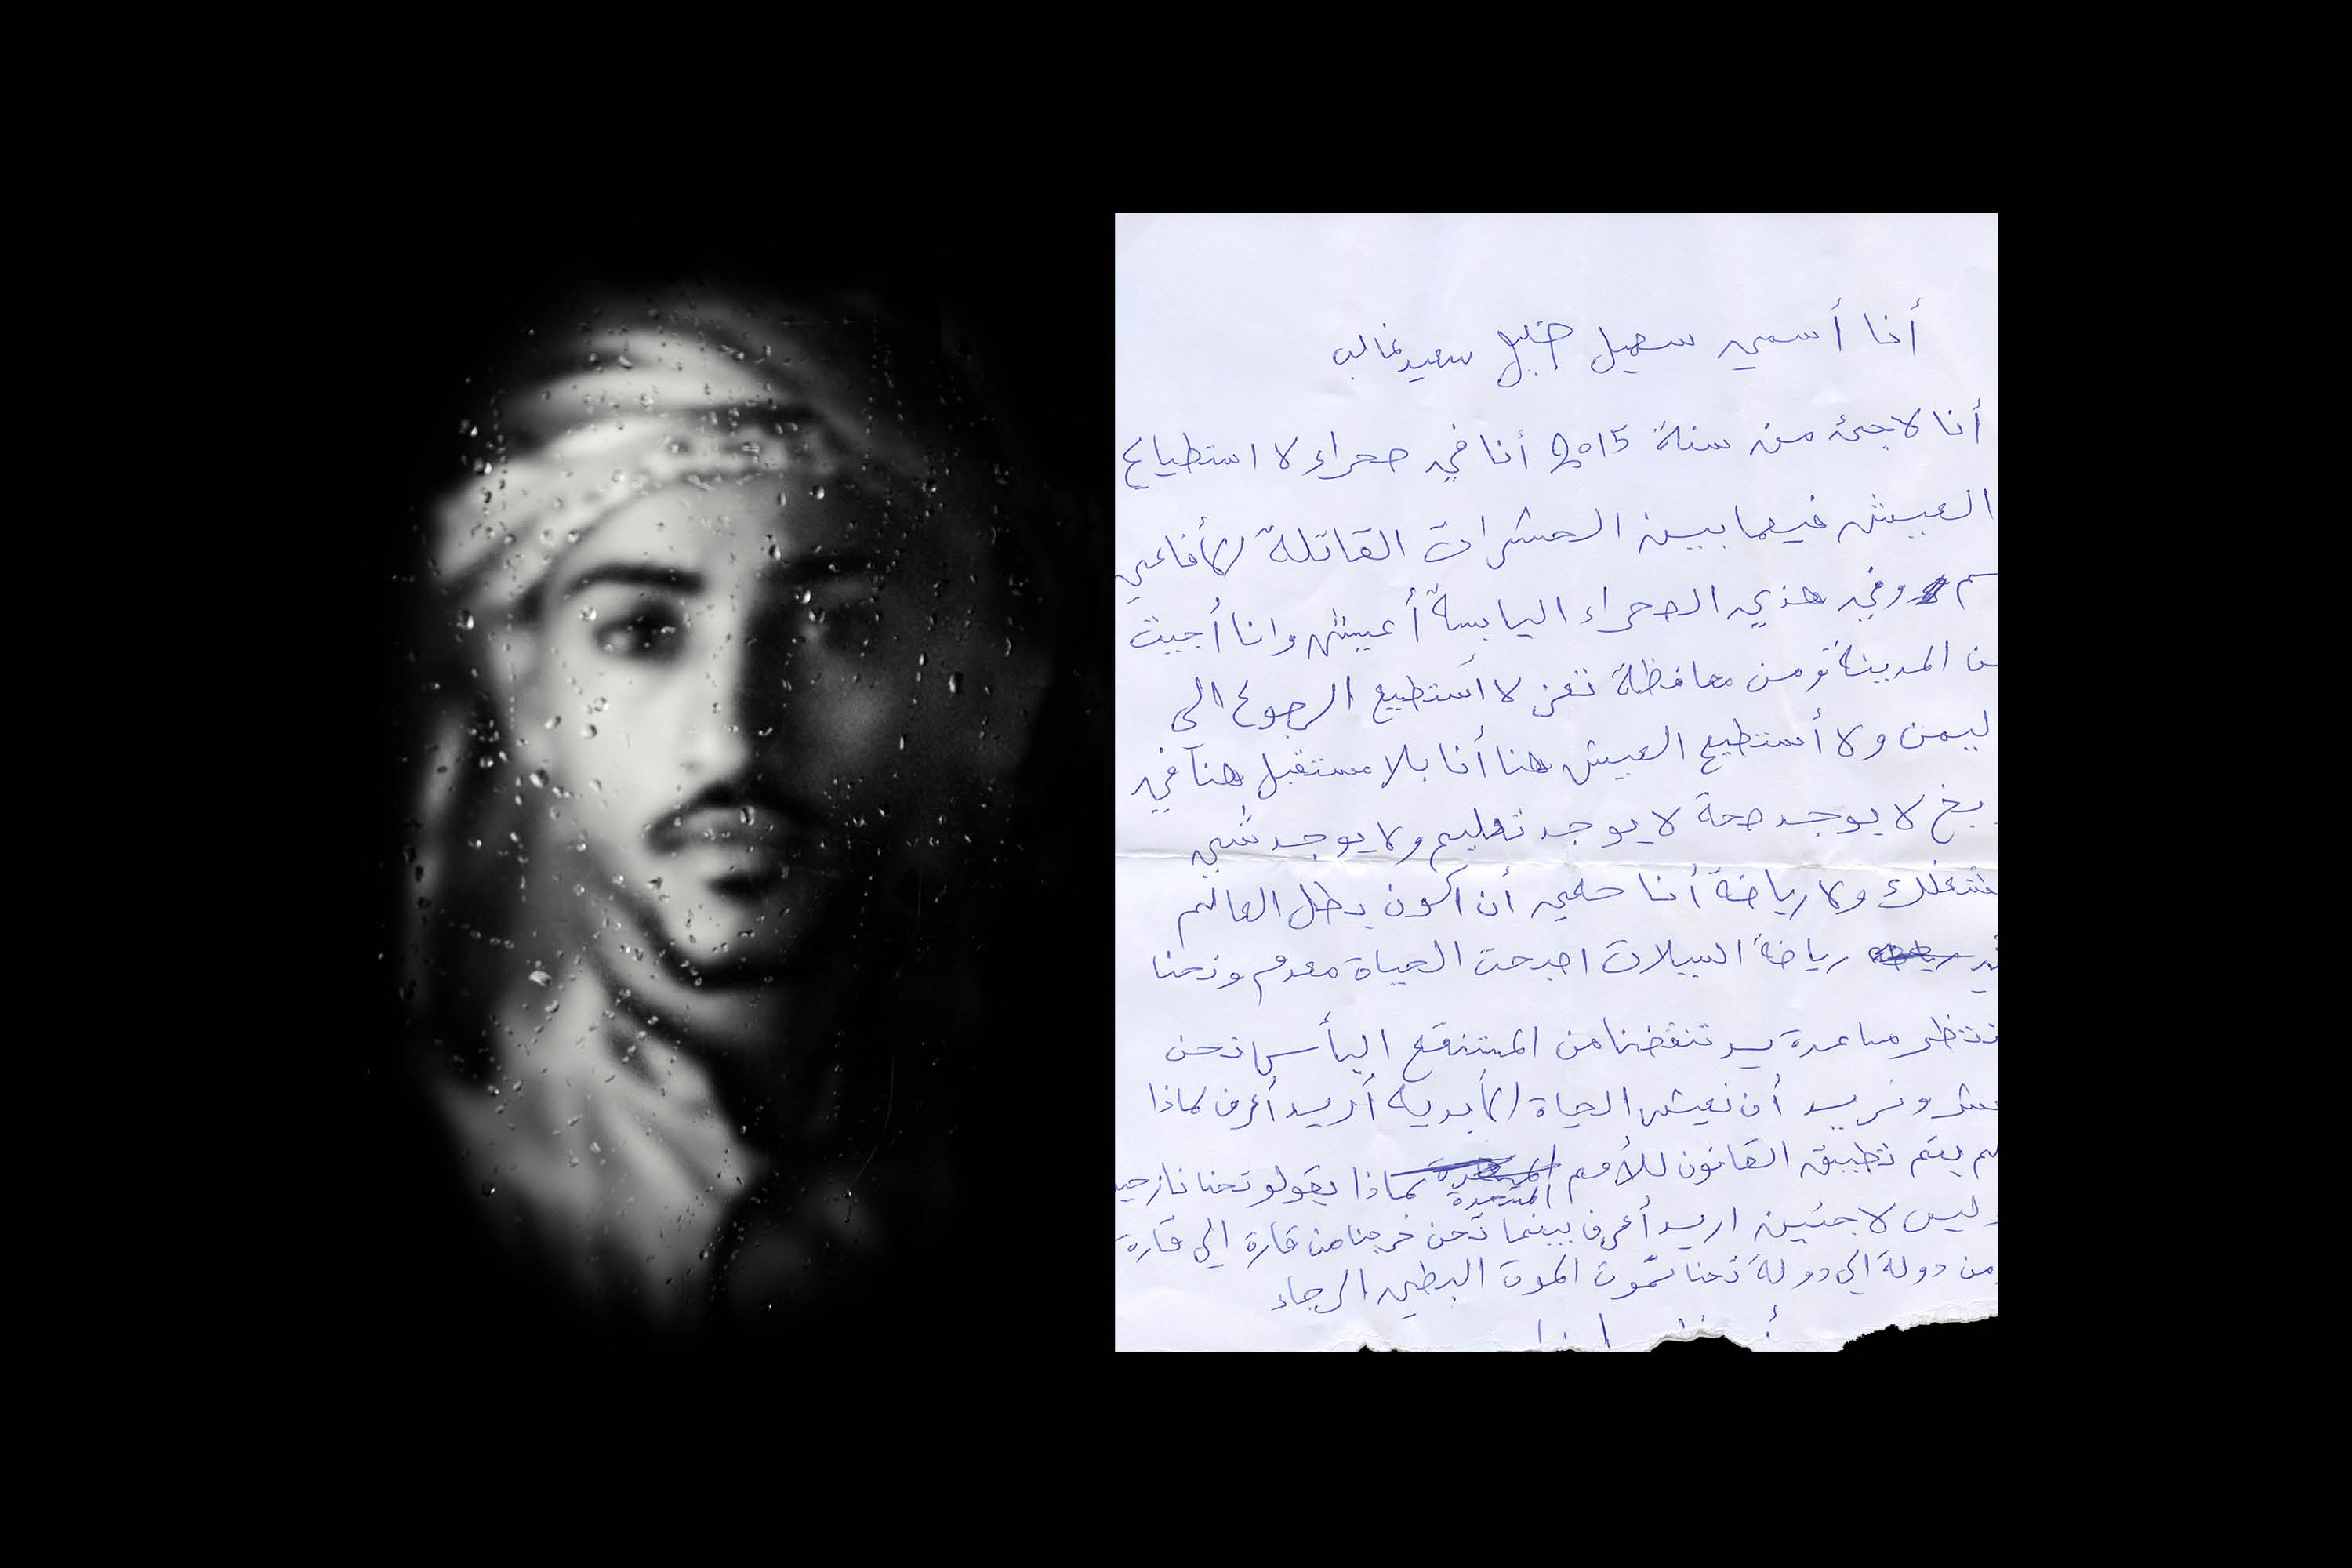 أنا أسمي سهيل خليل سعيد غالب
أنا لاجئ من سنة 2015 أنا في صحراء لا استطياع
العيش فيما بين الحشرات القاتلة الأفاعي
سم وفي هذي الصحراء اليابسة أعيش وانا أجيت
من المدينة ومن محافظة تعز لا أستطيع الرجوع الى
ليمن ولا أستطيع العيش هنا أنا بلا مستقبل هنا في
بخ لا يوجد صحة لا يوجد تعليم ولا يوجد شي
شغلك ولا رياضة أنا حلمي أن اكون بطل العالم
في رياضة السيلات اصبحت الحياة معدم ونحنا
ننتظر مساعدة يد تنقضنا من المستنقع اليأس نحن
ونريد أن نعيش الحياة الأبدية أريد أعرف لماذا
لم يتم تطبيق القانون للأمم المتحدة لماذا يقولو نحنا نازحين
وليس لاجئين اريد أعرف بينما نحن خرجنا من قارة إلى قارة
من دولة إلى دولة نحنا نموت الموت البطي الرجاء